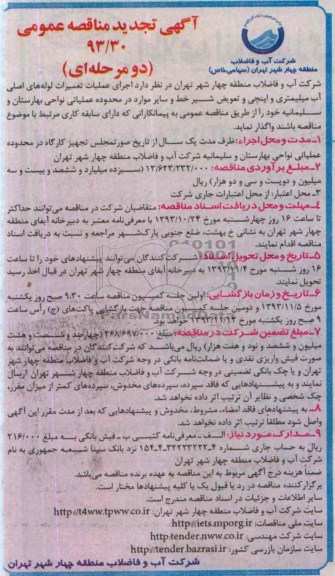 آگهی تجدید مناقصه عمومی
۹۳/۳۰
(دو مرحله‌ای)
شرکت آب و فاضلاب
منطقه چهار شهر تهران (سهامی خاص)
شرکت آب و فاضلاب منطقه چهار شهر تهران در نظر دارد اجرای عملیات تعمیرات لوله‌های اصلی
آب میلیمتری و اینچی و تعویض شیر خط و سایر موارد در محدوده عملیاتی نواحی بهارستان و
سلیمانیه خود را از طریق مناقصه عمومی به پیمانکارانی که دارای سابقه کاری مرتبط با موضوع
مناقصه باشند واگذار نماید.
۱ـ مدت و محل اجراء: ظرف مدت یک سال از تاریخ صورتمجلس تجهیز کارگاه در محدوده
عملیاتی نواحی بهارستان و سلیمانیه شرکت آب و فاضلاب منطقه چهار شهر تهران
۲ـ مبلغ برآوردی مناقصه: ۱۳/۶۲۳/۲۳۲/۰۰۰ (سیزده میلیارد و ششصد و بیست و سه
میلیون و دویست و سی و دو هزار) ریال
۳ـ محل اعتبار: از محل اعتبارات جاری شرکت
۴ـ مهلت و محل دریافت اسناد مناقصه: متقاضیان شرکت در مناقصه می‌توانند حداکثر
تا ساعت ۱۶ روز چهارشنبه مورخ ۱۳۹۳/۱۰/۲۴ با معرفی‌نامه معتبر به دبیرخانه آبفای منطقه
چهار شهر تهران به نشانی خ بهشت، ضلع جنوبی پارک‌شهر مراجعه و نسبت به دریافت اسناد
مناقصه اقدام نمایند.
۵ـ تاریخ و محل تحویل اسناد: شرکت‌کنندگان می‌توانند پیشنهادهای خود را تا ساعت
۱۶ روز شنبه مورخ ۱۳۹۳/۱۱/۴ به دبیرخانه آبفای منطقه چهار شهر تهران در قبال اخذ رسید
تحویل نمایند.
۶ـ تاریخ و زمان بازگشایی: اولین جلسه کمیسیون مناقصه ساعت ۹:۳۰ صبح روز یکشنبه
مورخ ۱۳۹۳/۱۱/۵ و دومین جلسه کمیسیون مناقصه جهت بازگشایی پاکت‌های (ج) رأس ساعت
۹ صبح روز یکشنبه مورخ خواهد بود.
۷ـ مبلغ تضمین شرکت در مناقصه:
میلیون و ششصد و نود و هفت هزار) ریال می‌باشد که شرکت‌کنندگان در مناقصه می‌توانند به
صورت فیش واریزی نقدی و یا ضمانت‌نامه بانکی در وجه شرکت آب و فاضلاب منطقه چهار شهر
تهران و یا چک بانکی تضمینی در وجه شرکت آب و فاضلاب منطقه چهار شهر تهران ارسال
نمایند و به پیشنهادهایی که فاقد سپرده، سپرده‌های مخدوش، سپرده‌های کمتر از میزان مقرر،
چک شخصی و نظایر آن ترتیب اثر داده نخواهد شد.
۸ـ به پیشنهادهای فاقد امضاء، مشروط، مخدوش و پیشنهادهایی که بعد از مدت مقرر این آگهی
واصل شود مطلقاً ترتیب اثر داده نخواهد شد.
۹ـ مدارک مورد نیاز: الف ـ معرفی‌نامه کتبی ب ـ فیش بانکی به مبلغ ۲۱۶/۰۰۰
ریال به حساب جاری شماره نزد بانک سینا شعبه جمهوری به نام
شرکت آب و فاضلاب منطقه چهار شهر تهران
ضمناً هزینه درج آگهی مربوط به این مناقصه به عهده برنده مناقصه می‌باشد.
برگزارکننده: مناقصه در رد یا قبول یک یا کلیه پیشنهادها مختار است.
سایر اطلاعات و جزئیات در اسناد مناقصه مندرج است.
سایت شرکت آب و فاضلاب منطقه چهار شهر تهران: http://t4ww.tpww.co.ir
سایت ملی مناقصات: http://iets.mporg.ir
سایت شرکت مهندسی: http:tender.nww.co.ir
سایت سازمان بازرسی کشور: http://tender.bazrasi.ir
شرکت آب و فاضلاب منطقه چهار شهر تهران